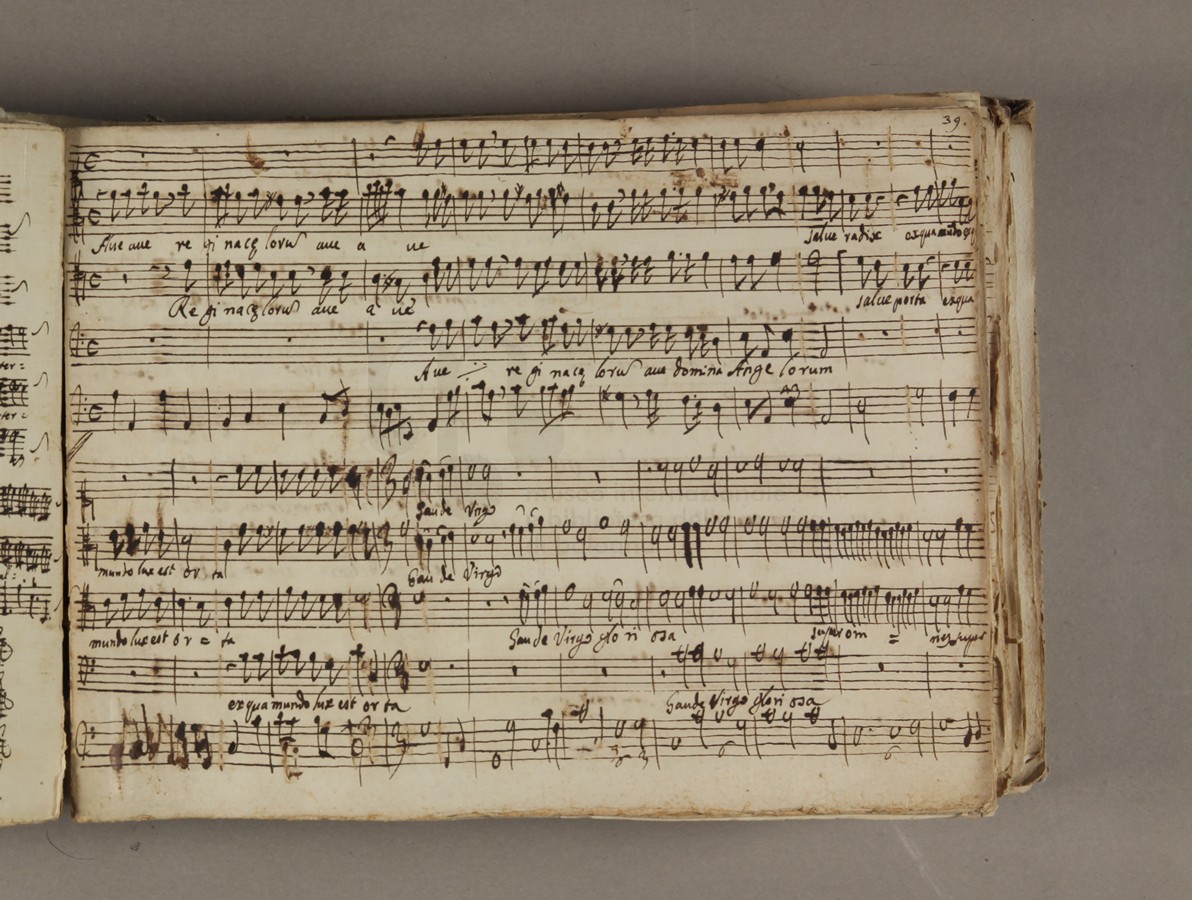 39.
Aue aue re gi nacę lorū aue a ue salue radix exqua mundo
Re gi nacę lorū aue a ue salue porta exqua
Aue re gi nacę lorū aue domina Ange lorum
Gaude Virgo
mundo lux est or ta Gau de Virgo
mundo lux est or ta Gaude Virgo glo ri osa super om nes super
exqua mundo lux est or ta Gaude Virgo glori osa
6 6